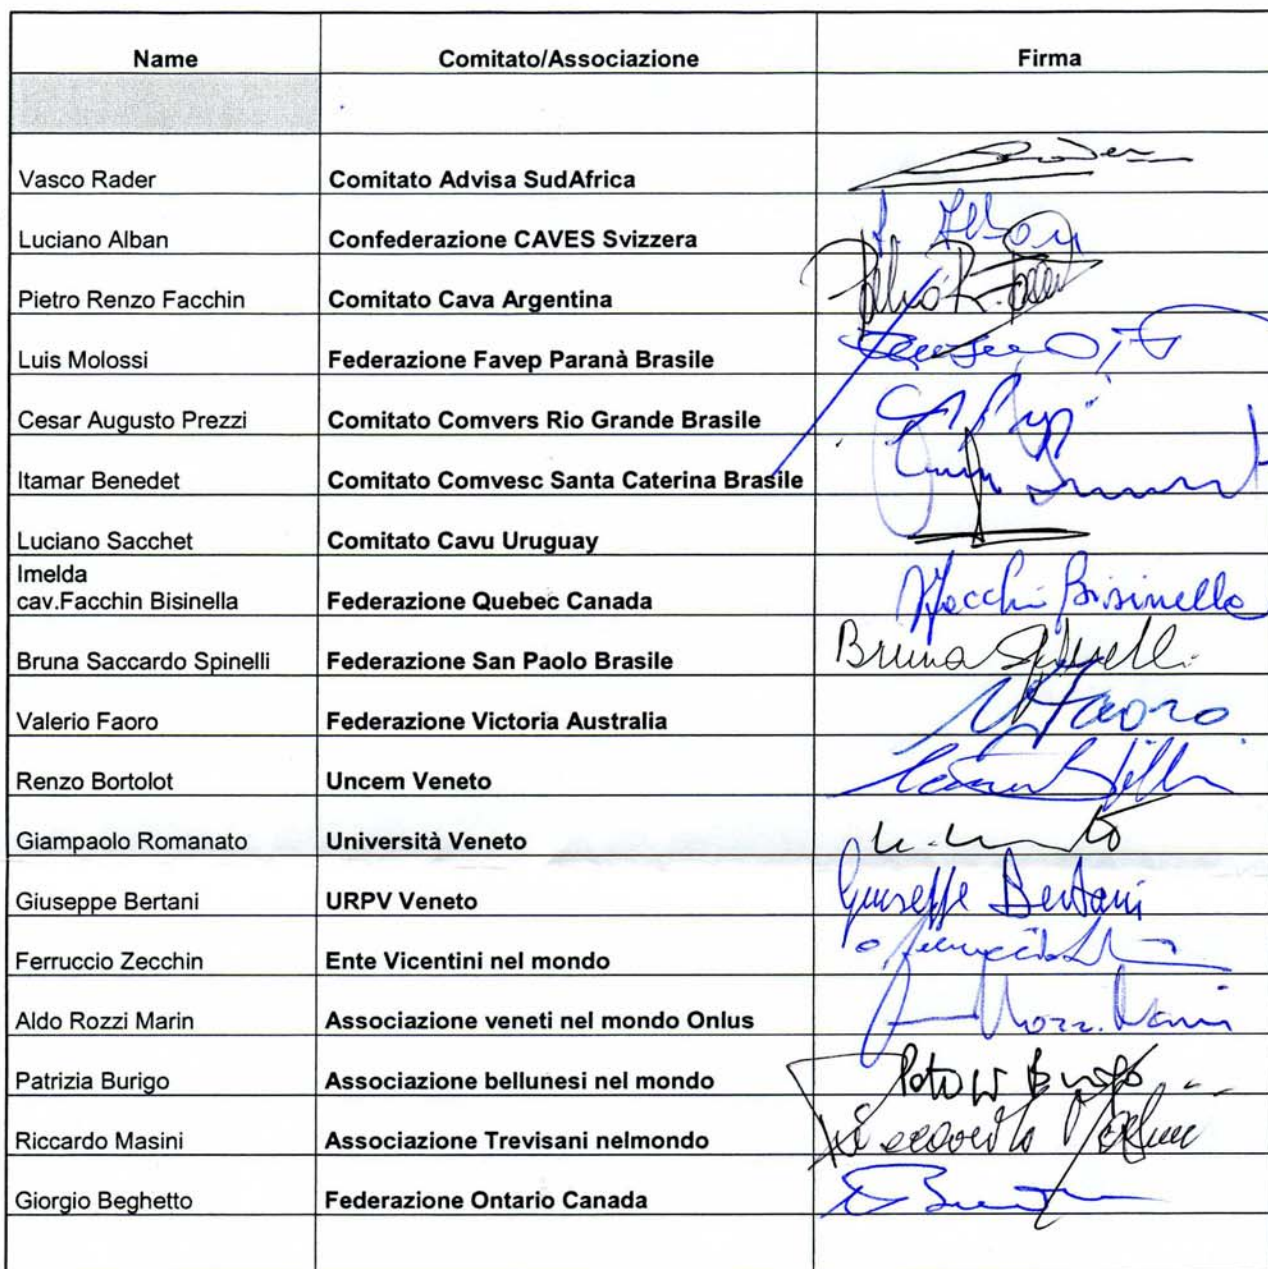 Name Comitato/Associazione Firma
Vasco Rader Comitato Advisa SudAfrica
Luciano Alban Confederazione CAVES Svizzera
Pietro Renzo Facchin Comitato Cava Argentina
Luis Molossi Federazione Favep Paranà Brasile
Cesar Augusto Prezzi Comitato Comvers Rio Grande Brasile
Itamar Benedet Comitato Comvesc Santa Caterina Brasile
Luciano Sacchet Comitato Cavu Uruguay
Imelda
cav.Facchin Bisinella Federazione Quebec Canada Bisinella
Bruna Saccardo Spinelli Federazione San Paolo Brasile Bruna Spinelli
Valerio Faoro Federazione Victoria Australia Faoro
Renzo Bortolot Uncem Veneto
Giampaolo Romanato Università Veneto
Giuseppe Bertani URPV Veneto Giuseppe Bertani
Ferruccio Zecchin Ente Vicentini nel mondo
Aldo Rozzi Marin Associazione veneti nel mondo Onlus
Patrizia Burigo Associazione bellunesi nel mondo
Riccardo Masini Associazione Trevisani nelmondo
Giorgio Beghetto Federazione Ontario Canada